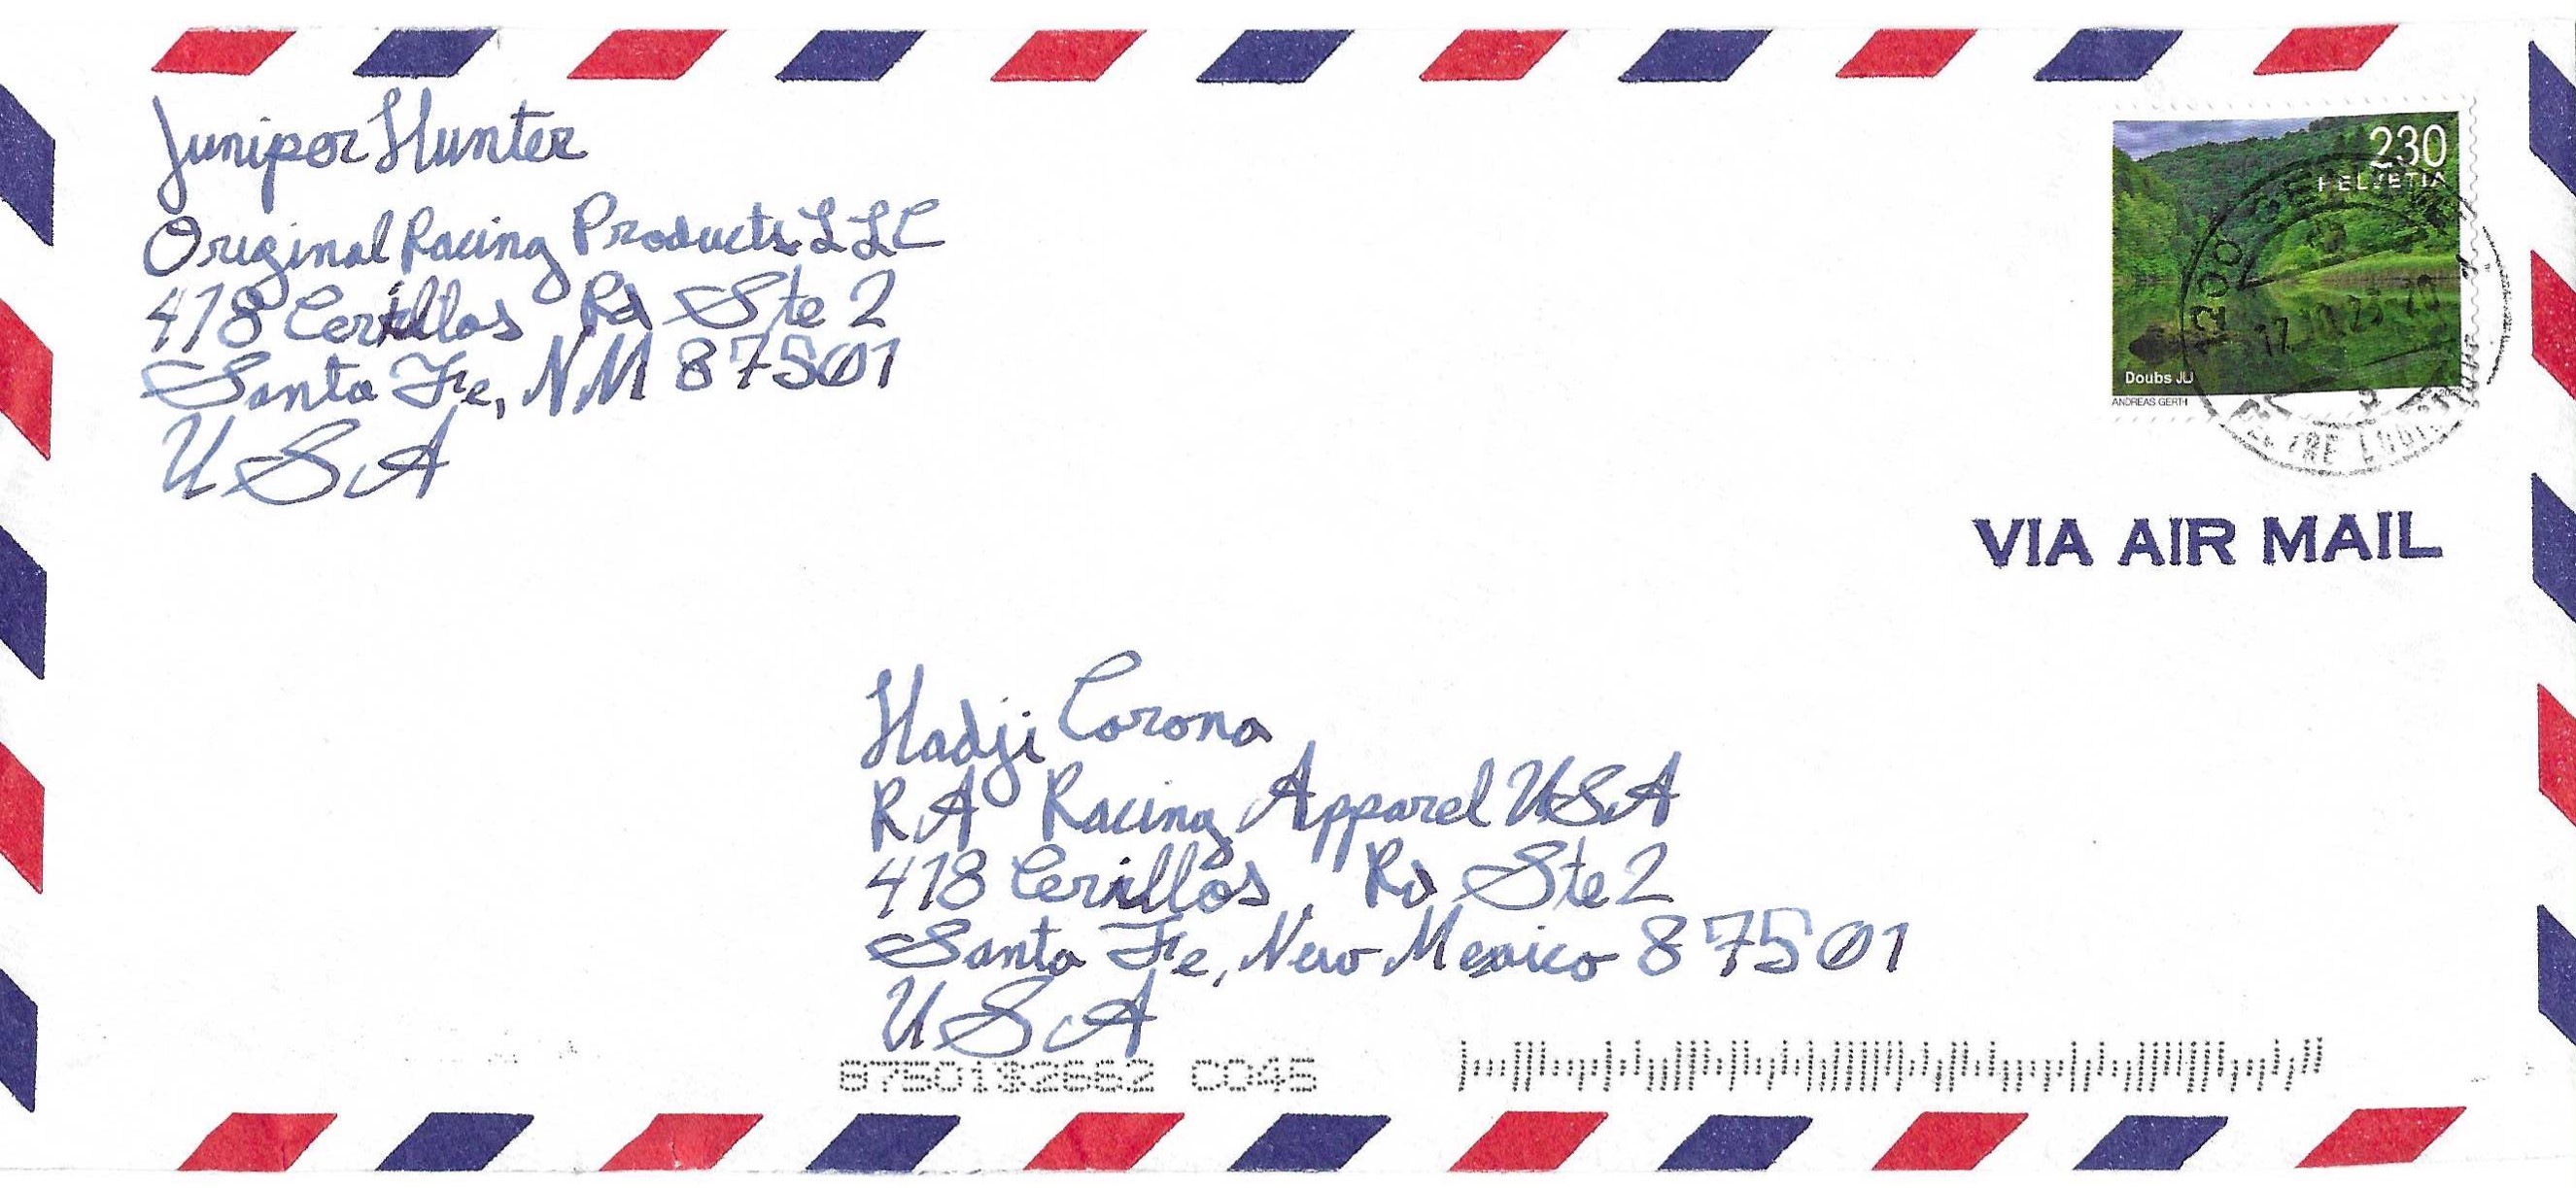 Junipor Hunter
Original Racing Products LLC
418 Cerrillos Rd Ste 2
Santa Fe, NM 87501
USA
230
HELVETIA
Doubs JU
ANDREAS GERTH
1200
17.10.23-20
VIA AIR MAIL
Hadji Corona
RA Racing Apparel USA
418 Cerillos Rd Ste 2
Santa Fe, New Mexico 87501
USA
C045